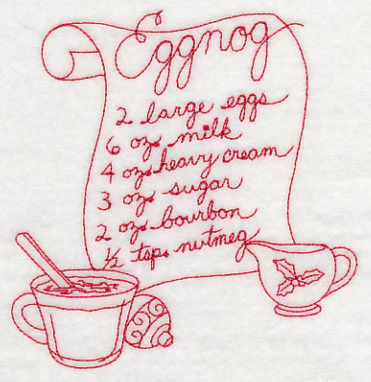 Eggnog
2 large eggs
6 oz. milk
4 oz. heavy cream
3 oz. sugar
2 oz. bourbon
½ tsp. nutmeg